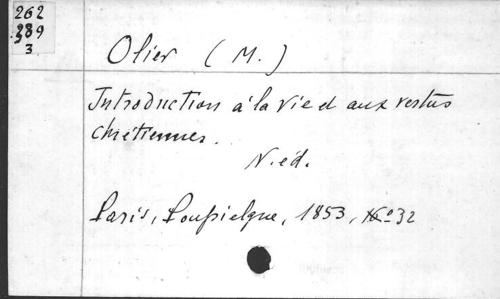 262
389
3
Olier (M.)
Introduction à la vie et aux vertus
chrétiennes.
N. éd.
Paris, Poussielgue, 1853, in 32